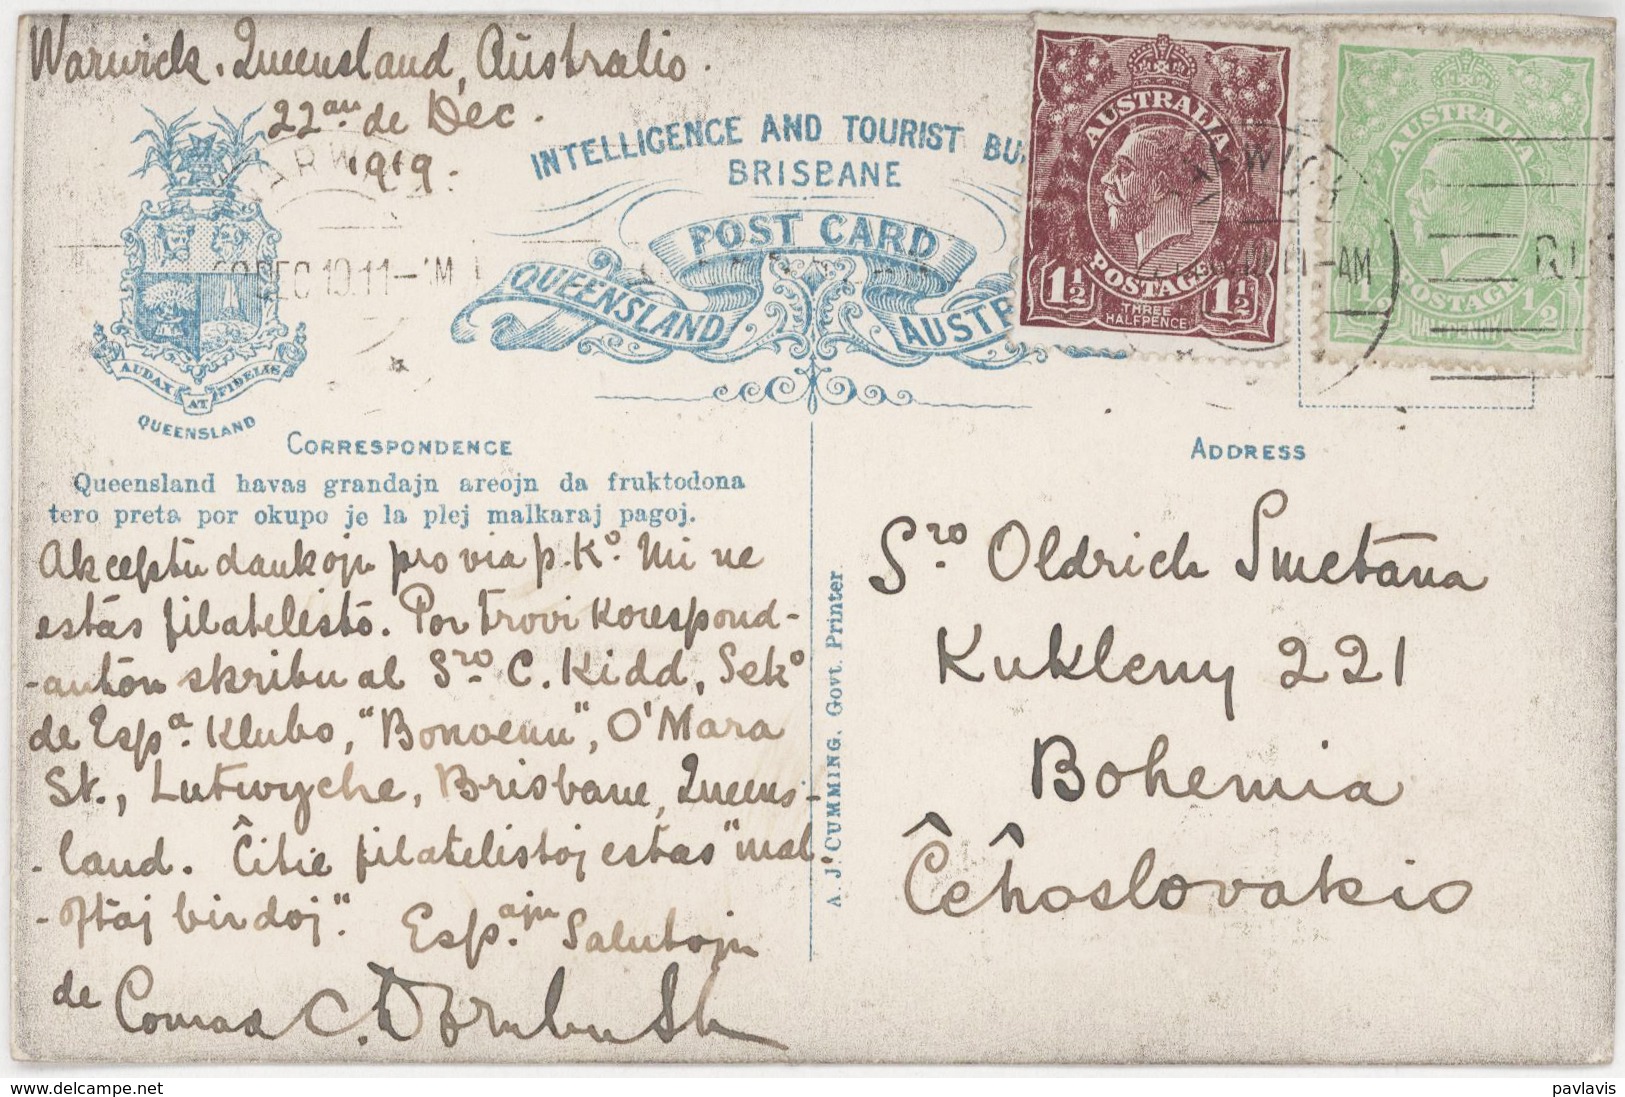 Warwick, Queensland, Aŭstralio.
22an de Dec.
1919.
WARWI
DEC 19.11-
INTELLIGENCE AND TOURIST BU
BRISBANE
POST CARD
QUEENSLAND AUSTR
AUDAX AT FIDELIS
QUEENSLAND
AUSTRALIA
POSTAGE
1½ 1½
THREE
HALFPENCE
AUSTRALIA
POSTAGE
½ ½
HALFPENNY
WARWICK
-AM
CORRESPONDENCE
Queensland havas grandajn areojn da fruktodona
tero preta por okupo je la plej malkaraj pagoj.
Akceptu dankojn pro via p.Ko. Mi ne
estas filatelisto. Por trovi korespond-
-anton skribu al Sro C. Kidd, Seko
de Espa. Klubo, "Bonvenu", O'Mara
St., Lutwyche, Brisbane, Queens-
-land. Ĉitie filatelistoj estas "mal-
-oftaj birdoj."
Esp.ajn Salutojn
de Conrad C. Dornbusch
A. J. CUMMING, Govt. Printer
ADDRESS
Sro Oldrich Smetana
Kukleny 221
Bohemia
Ĉeĥoslovakio
delcampe.net
pavlavis